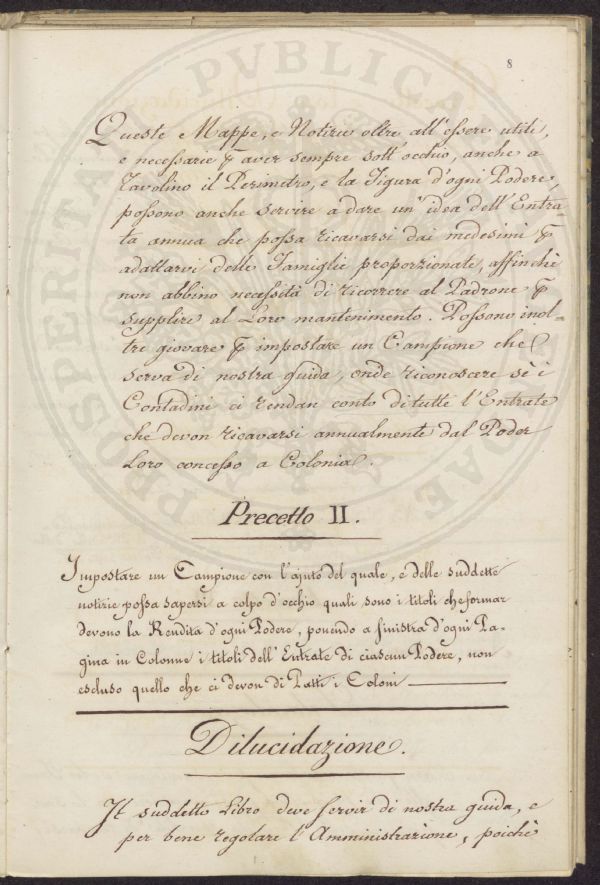 8
Queste Mappe, e Notizie oltre all'essere utili,
e necessarie ꝑ aver sempre sott'occhio, anche a
Tavolino il Perimetro, e la Figura d'ogni Podere,
possono anche servire a dare un'idea dell'Entra-
ta annua che possa ricavarsi dai medesimi ꝑ
adattarvi delle Famiglie proporzionate, affinchè
non abbino necessità di ricorrere al Padrone ꝑ
supplire al Loro mantenimento. Possono inol-
tre giovare ꝑ impostare un Campione che
serva di nostra guida, onde riconoscere se i
Contadini ci rendan conto di tutte l'Entrate
che devon ricavarsi annualmente dal Poder
Loro concesso a Colonia.
Precetto II.
Impostare un Campione con l'ajuto del quale, e delle suddette
notizie possa sapersi a colpo d'occhio quali sono i titoli che formar
devono la Rendita d'ogni Podere, ponendo a sinistra d'ogni Pa-
gina in Colonne i titoli dell'Entrate di ciascun Podere, non
escluso quello che ci devon di Patti i Coloni
Dilucidazione.
Il suddetto Libro deve servir di nostra guida, e
per bene regolare l'Amministrazione, poichè
PVBLICAE
PROSPERITATI